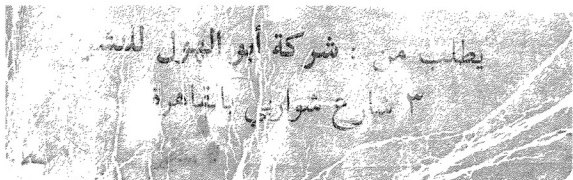 يطلب من : شركة أبو الهول للنشر
٣ شارع شواربي بالقاهرة